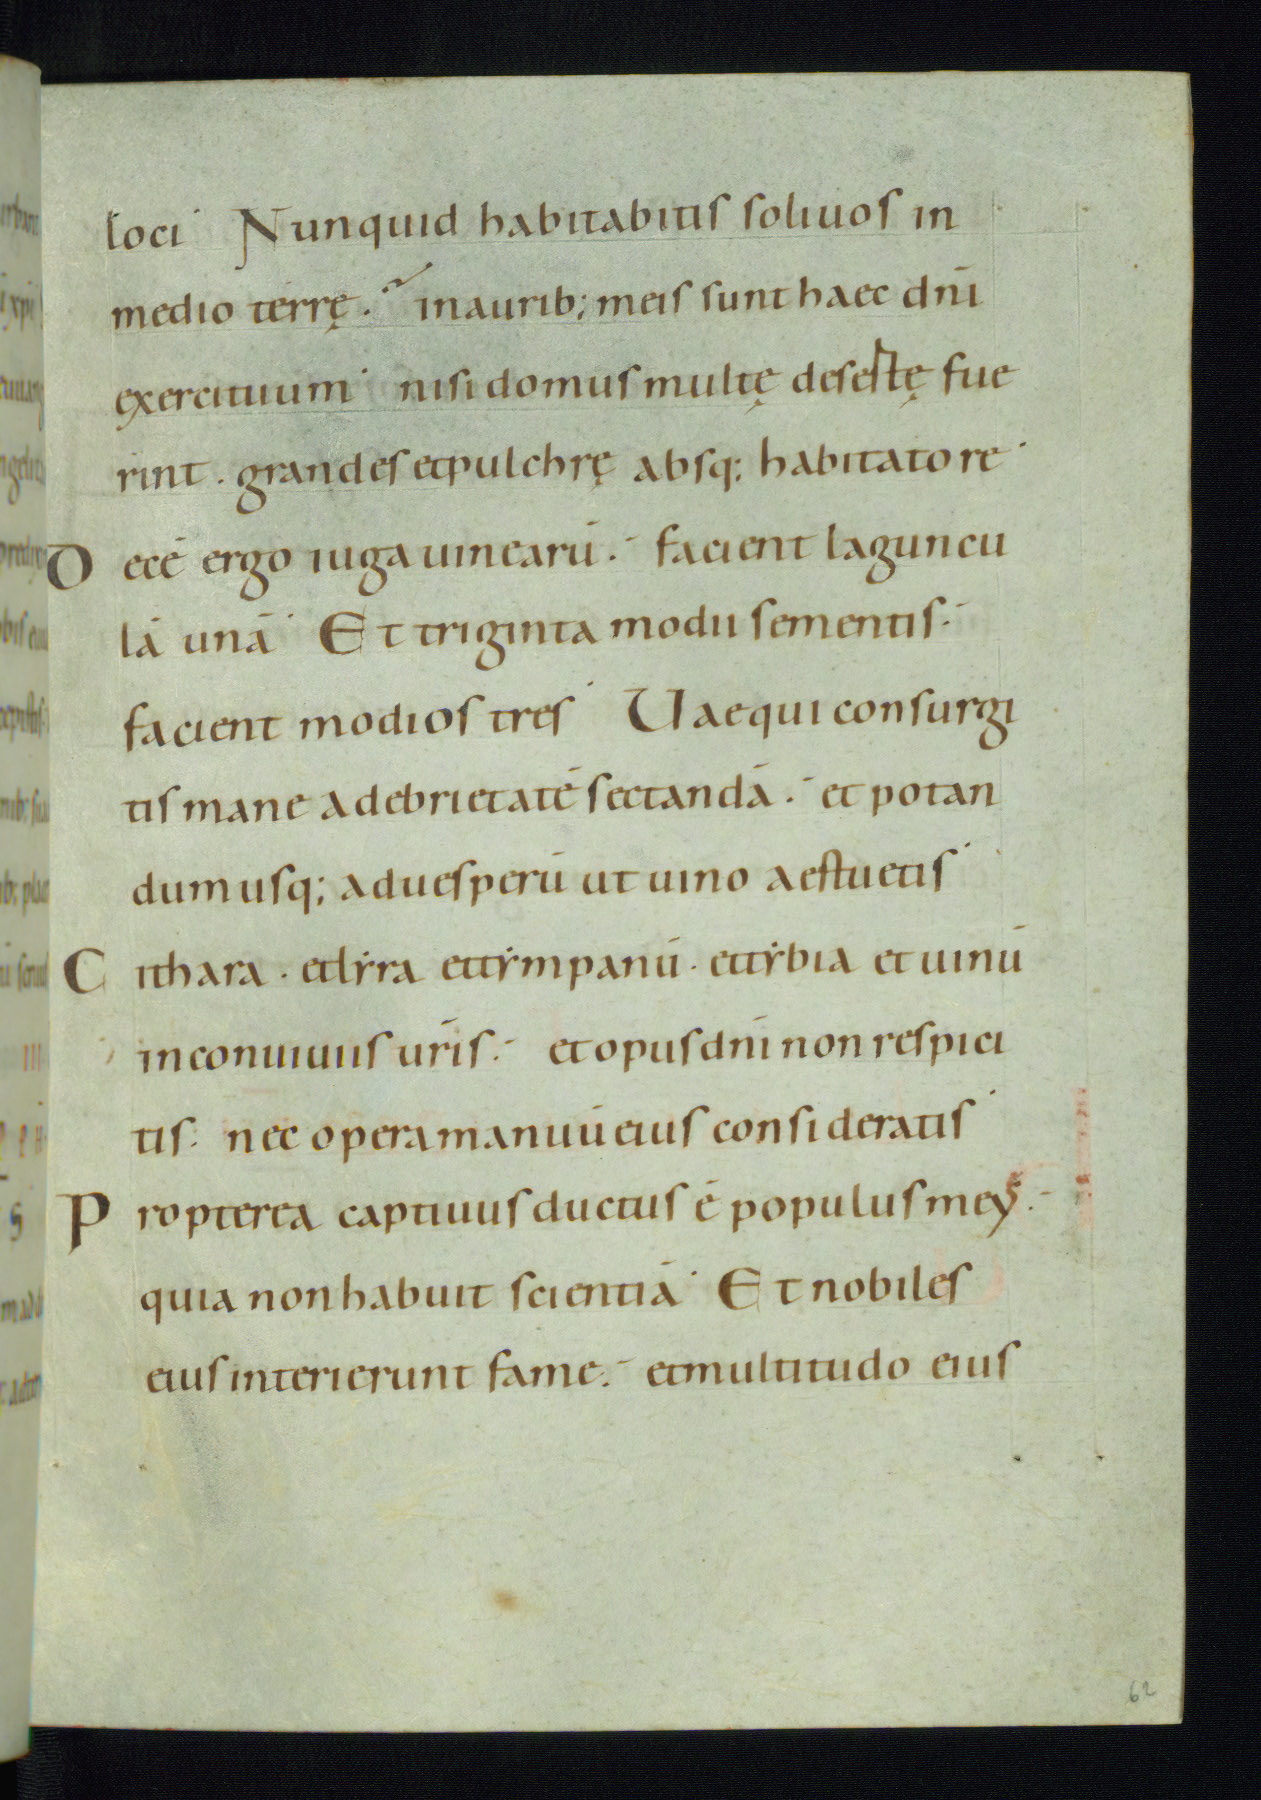 loci· Nunquid habitabitis soli uos in
medio terrę.̃ in aurib; meis sunt haec dñi
exercituum· nisi domus multę desertę fue
rint . grandes et pulchrę absq; habitatore·
Decē ergo iuga uinearū. facient laguncu
lā unā· Et triginta modii sementis.
facient modios tres· Uae qui consurgi
tis mane ad ebrietatē sectandā. et potan
dum usq; ad uesperū ut uino aestuetis·
Cithara . et lẏra et tẏmpanū . et tẏbia et uinū
in conuiuiis ur̄is. et opus dñi non respici
tis. nec opera manuū eius consideratis·
Propterea captiuus ductus ē populus meꝰ.
quia non habuit scientiā· Et nobiles
eius interierunt fame. et multitudo eius
62